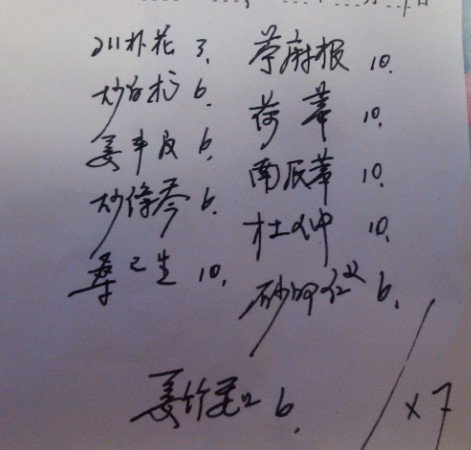 川朴花 3. 苧麻根 10.
炒白术 6. 荷蒂 10.
姜半夏 6. 南瓜蒂 10.
炒條芩 6. 杜仲 10.
桑己生 10. 砂叩仁 6.
姜竹茹 6.
×7